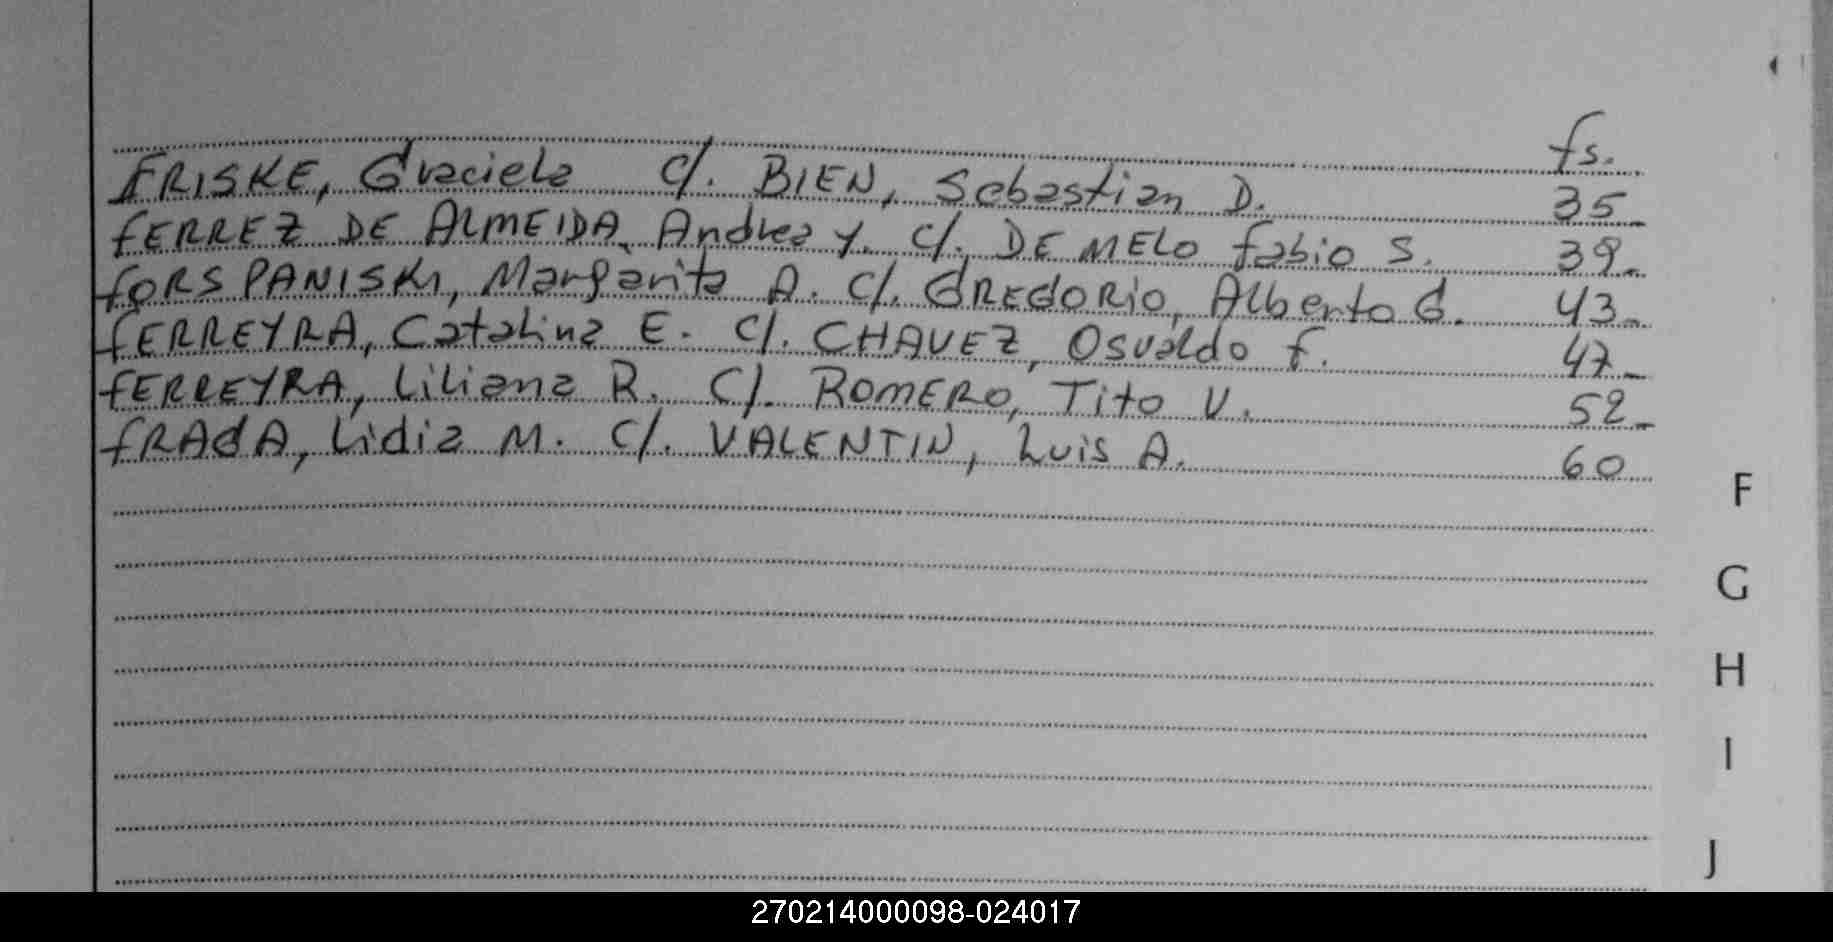 fs.
FRISKE, Graciela C/. BIEN, Sebastian D. 35_
FERREZ DE ALMEIDA, Andrea Y. C/. DE MELO Fabio S. 39_
FORSPANISKI, Margarita A. C/. GREGORIO, Alberto G. 43_
FERREYRA, Catalina E. C/. CHAVEZ, Osvaldo F. 47_
FERREYRA, Liliana R. C/. ROMERO, Tito V. 52_
FRAGA, Lidia M. C/. VALENTIN, Luis A. 60
F
G
H
I
J
270214000098-024017